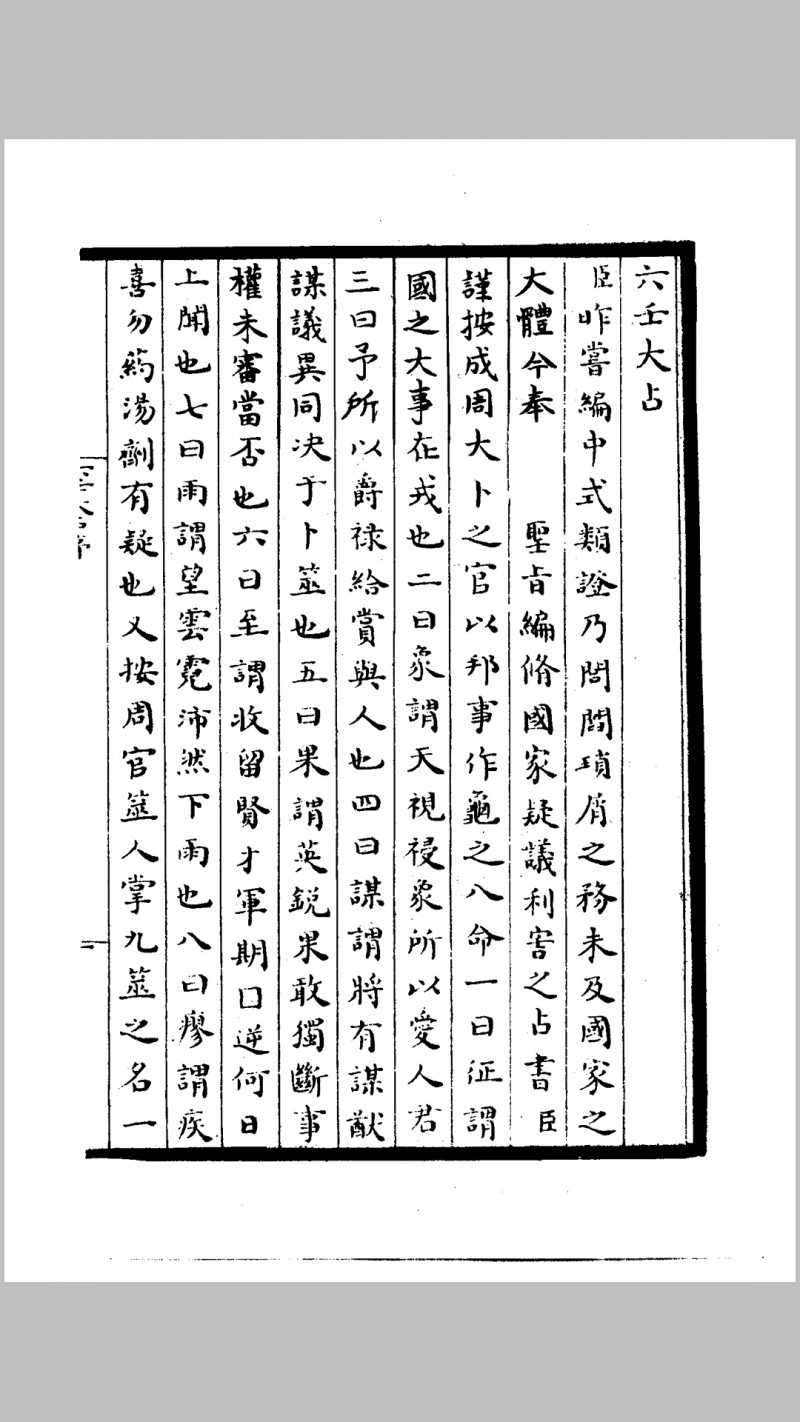 六壬大占
臣昨嘗編中式類證乃閭閻瑣屑之務未及國家之
大體今奉　聖旨編脩國家疑議利害之占書臣
謹按成周大卜之官以邦事作龜之八命一曰征謂
國之大事在戎也二曰象謂天視祲象所以愛人君
三曰予所以爵祿給賞與人也四曰謀謂將有謀猷
謀議異同决于卜筮也五曰果謂英銳果敢獨斷事
權未審當否也六曰至謂收留賢才軍期口逆何日
上聞也七曰雨謂望雲霓沛然下雨也八曰瘳謂疾
喜勿葯湯劑有疑也又按周官筮人掌九筮之名一